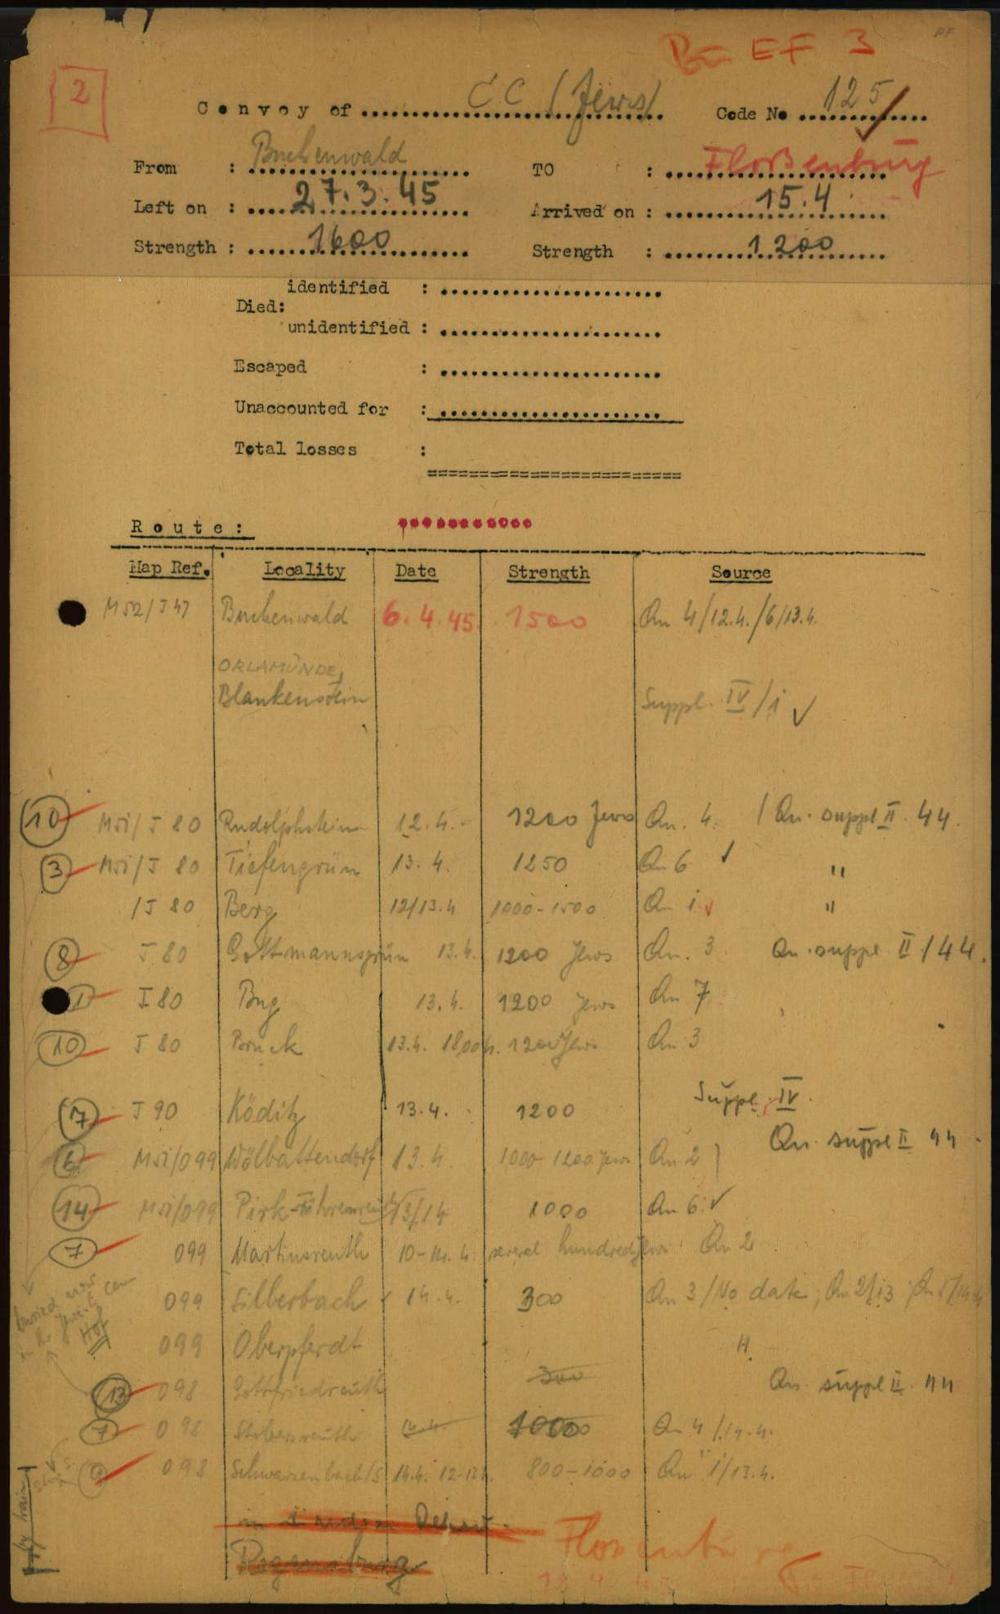 PF
Br EF 3
2
Convoy of ........ CC (Jews) ........ Code No ........ 125
From : Buchenwald TO : Floßenbürg
Left on : 27.3.45 Arrived on : 15.4
Strength : 1600 Strength : 1200
identified : ........................
Died:
unidentified : ........................
Escaped : ........................
Unaccounted for : ........................
Total losses :
========================
Route:
Map Ref. Locality Date Strength Source
M52/J47 Buchenwald 6.4.45 1500 Qu 4/12.4./6/13.4.
ORLAMÜNDE,
Blankenstein Suppl. IV/1 ✓
10 M51/J 80 Rudolphstein 12.4.- 1200 Jews Qu. 4. / Qu. suppl II. 44.
3 M51/J 80 Tiefengrün 13.4. 1250 Qu 6 ✓ "
/J 80 Berg 12/13.4 1000-1500 Qu 1 ✓ "
8 J 80 Gottmannsgrün 13.4. 1200 Jews Qu. 3 Qu. suppl II/44.
1 J 80 Bug 13.4. 1200 Jews Qu 7
10 J 80 Bruck 13.4. 18,00h. 1200 Jews Qu 3
7 J 90 Köditz 13.4. 1200 Suppl. IV.
6 M51/O99 Wölbattendorf 13.4. 1000-1200 Jews Qu 2 Qu. suppl II 44.
14 M51/O99 Pirk-Föhrenreuth 13/14 1000 Qu 6. ✓
7 O99 Martinsreuth 10-14.4. several hundred Jews Qu 2
O99 Silberbach 14.4. 300 Qu 3/No date; Qu 2/13
O99 Oberpferdt "
13 O98 Gottfriedsreuth 300 Qu. suppl II. 44
7 O98 Stobersreuth 14.4. 1000 Qu 4/14.4.
O98 Schwarzenbach/S 14.4. 12-13h. 800-1000 Qu 1/13.4.
buried now
Hof
by train
Regensburg
Flossenbürg